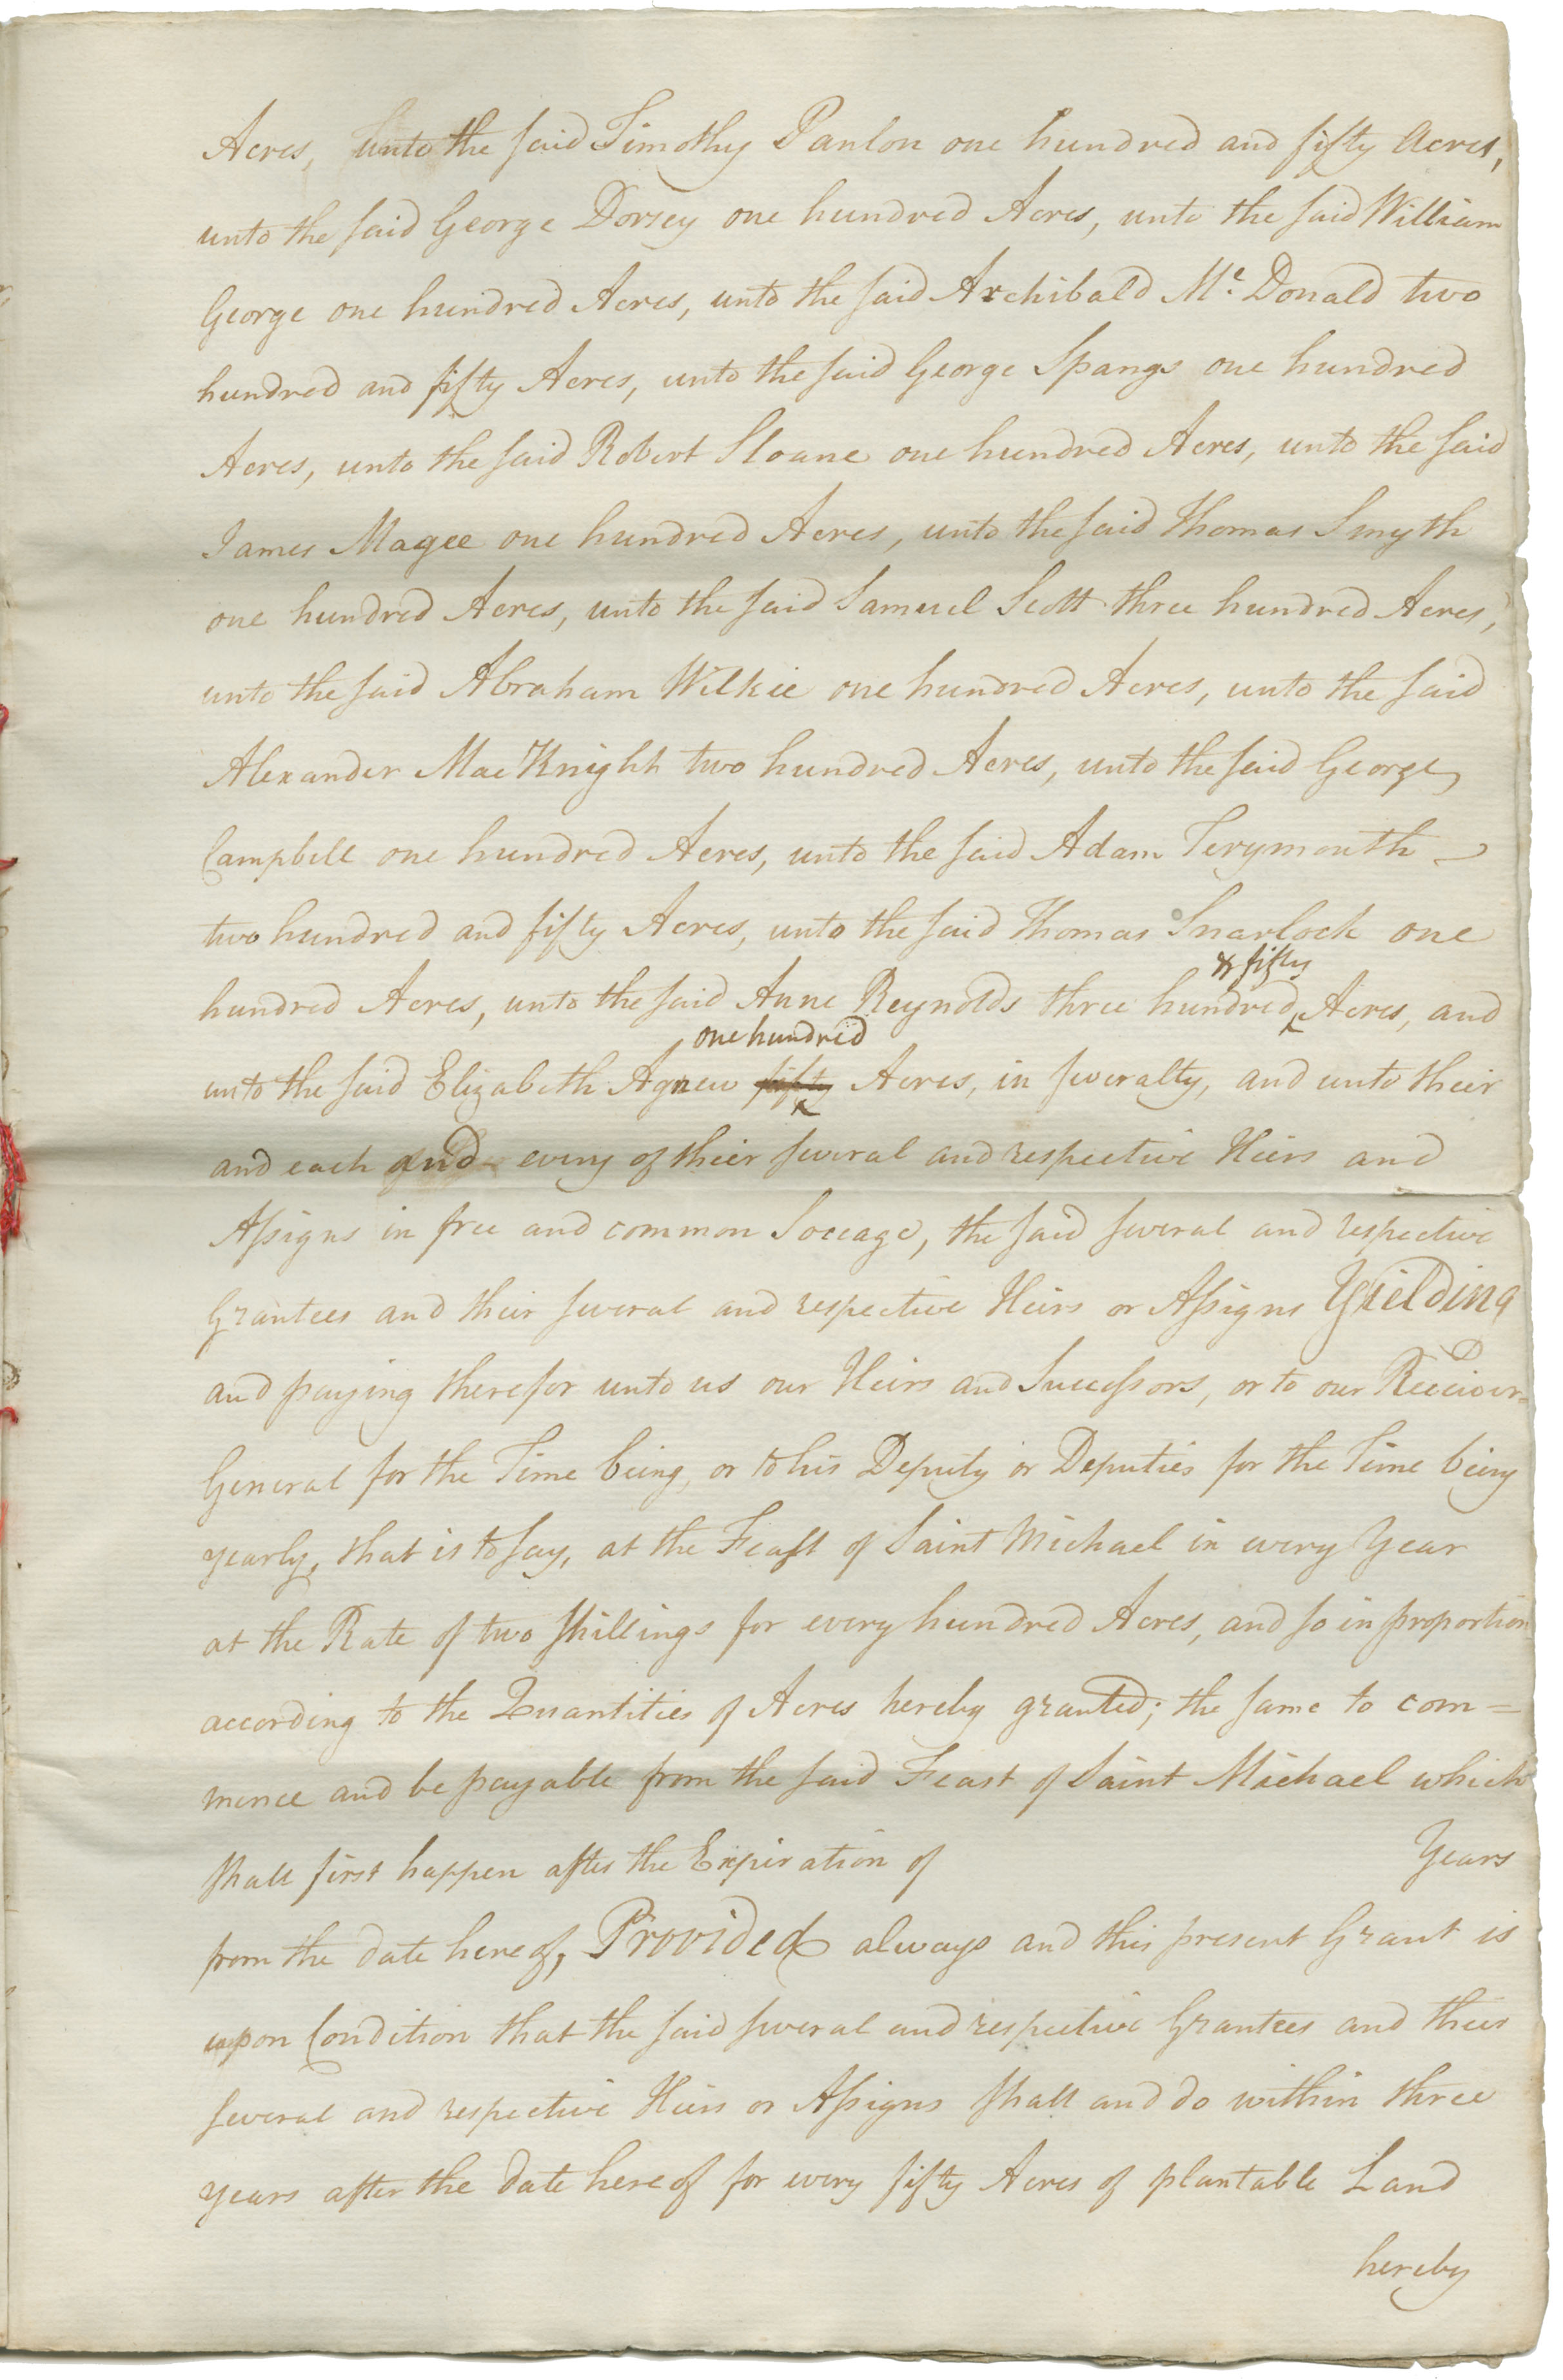 Acres, unto the said Timothy Danlon one hundred and fifty Acres,
unto the said George Dorsey one hundred Acres, unto the said William
George one hundred Acres, unto the said Archibald Mc. Donald two
hundred and fifty Acres, unto the said George Spangs one hundred
Acres, unto the said Robert Sloane one hundred Acres, unto the said
James Magee one hundred Acres, unto the said Thomas Smyth
one hundred Acres, unto the said Samuel Scott three hundred Acres,
unto the said Abraham Wilkie one hundred Acres, unto the said
Alexander MacKnight two hundred Acres, unto the said George
Campbell one hundred Acres, unto the said Adam Terymonth
two hundred and fifty Acres, unto the said Thomas Snarlock one
& fifty
hundred Acres, unto the said Anne Reynolds three hundred Acres, and
one hundred
unto the said Elizabeth Agnew fifty Acres, in severalty, and unto their
and each and every of their several and respective Heirs and
Assigns in free and common Soccage, the said several and respective
Grantees and their several and respective Heirs or Assigns Yielding
and paying therefor unto us our Heirs and Successors, or to our Receiver=
General for the Time being, or to his Deputy or Deputies for the Time being
yearly, that is to say, at the Feast of Saint Michael in every Year
at the Rate of two shillings for every hundred Acres, and so in proportion
according to the Quantities of Acres hereby granted; the same to com=
mence and be payable from the said Feast of Saint Michael which
shall first happen after the Expiration of Years
from the date hereof, Provided always and this present Grant is
upon Condition that the said several and respective Grantees and their
several and respective Heirs or Assigns shall and do within three
years after the date hereof for every fifty Acres of plantable Land
hereby